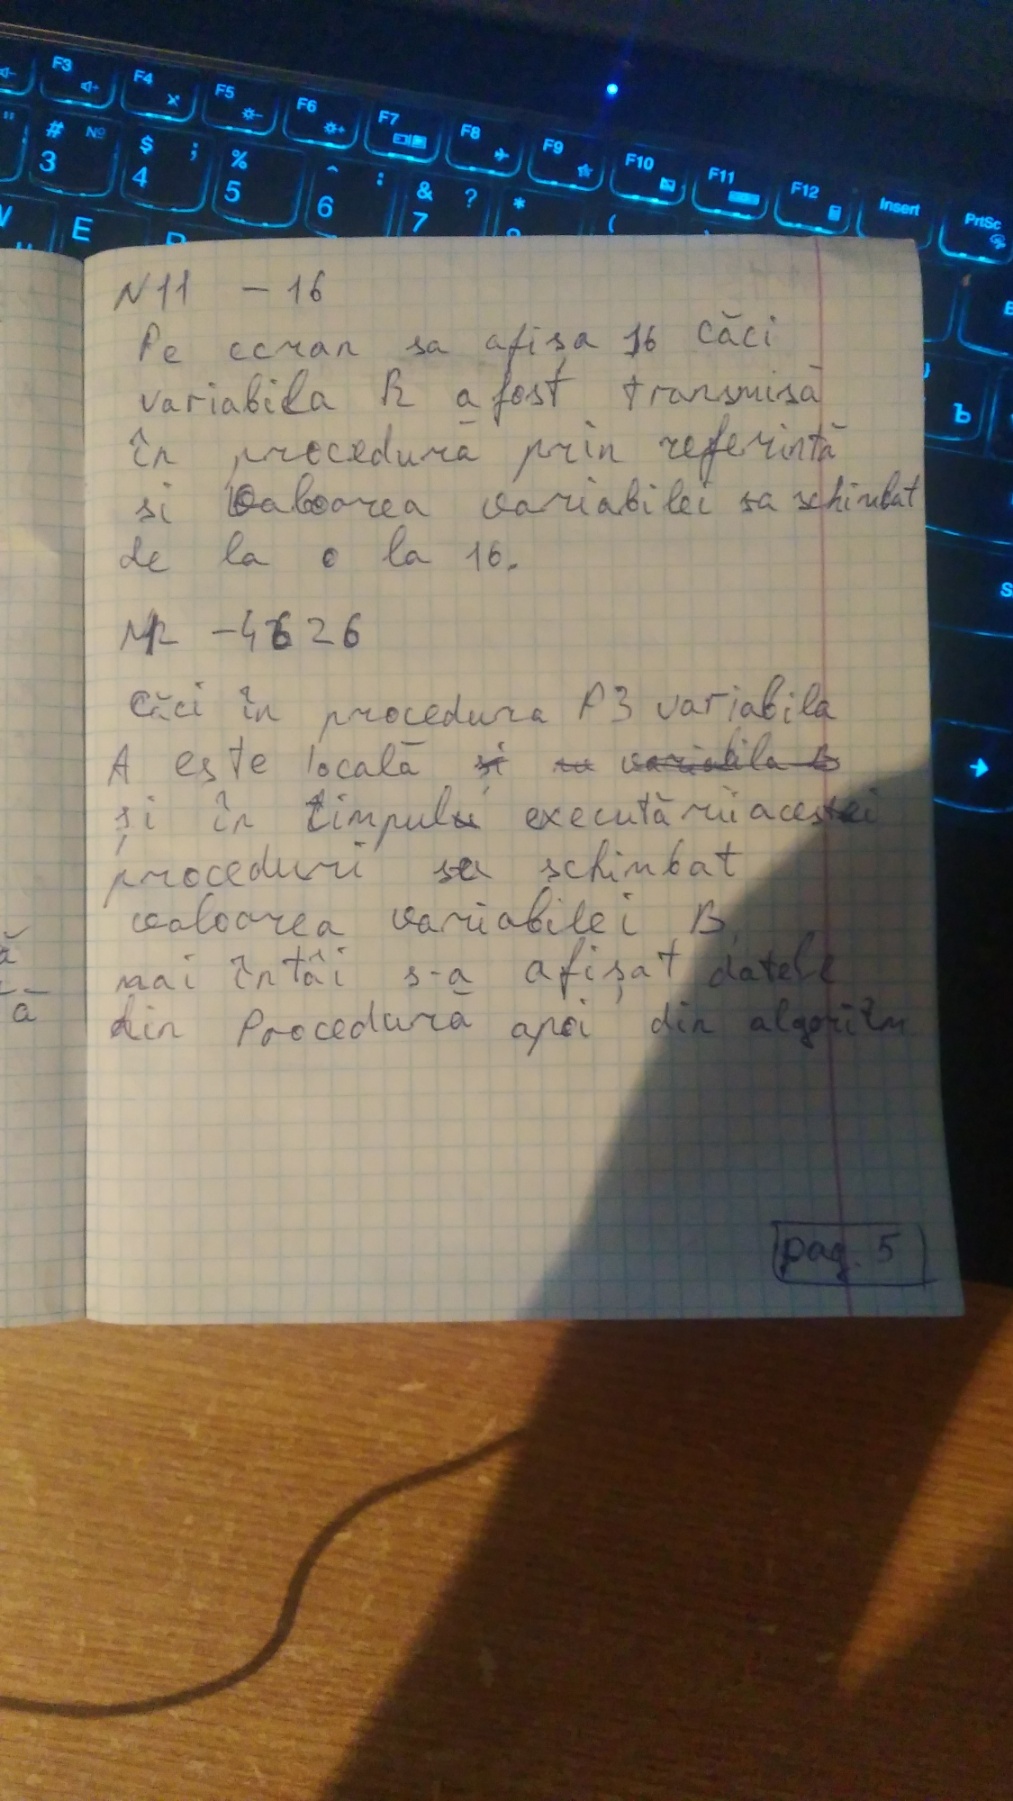 F3
F4
F5
F6
F7
F8
F9
F10
F11
F12
Insert
PrtSc
# №
3
$ ;
4
%
5
^ :
6
& ?
7
*
(
E
Ъ
N11 - 16
Pe ecran sa afișa 16 căci
variabila R a fost transmisă
în procedură prin referintă
si valoarea variabilei sa schimbat
de la 0 la 16.
căci în procedura P3 variabila
A este locală si variabila B
și în timpul executării acestei
proceduri sa schimbat
valoarea variabilei B
mai întâi s-a afișat datele
din Procedură apoi din algoritm
pag. 5
ă
ă